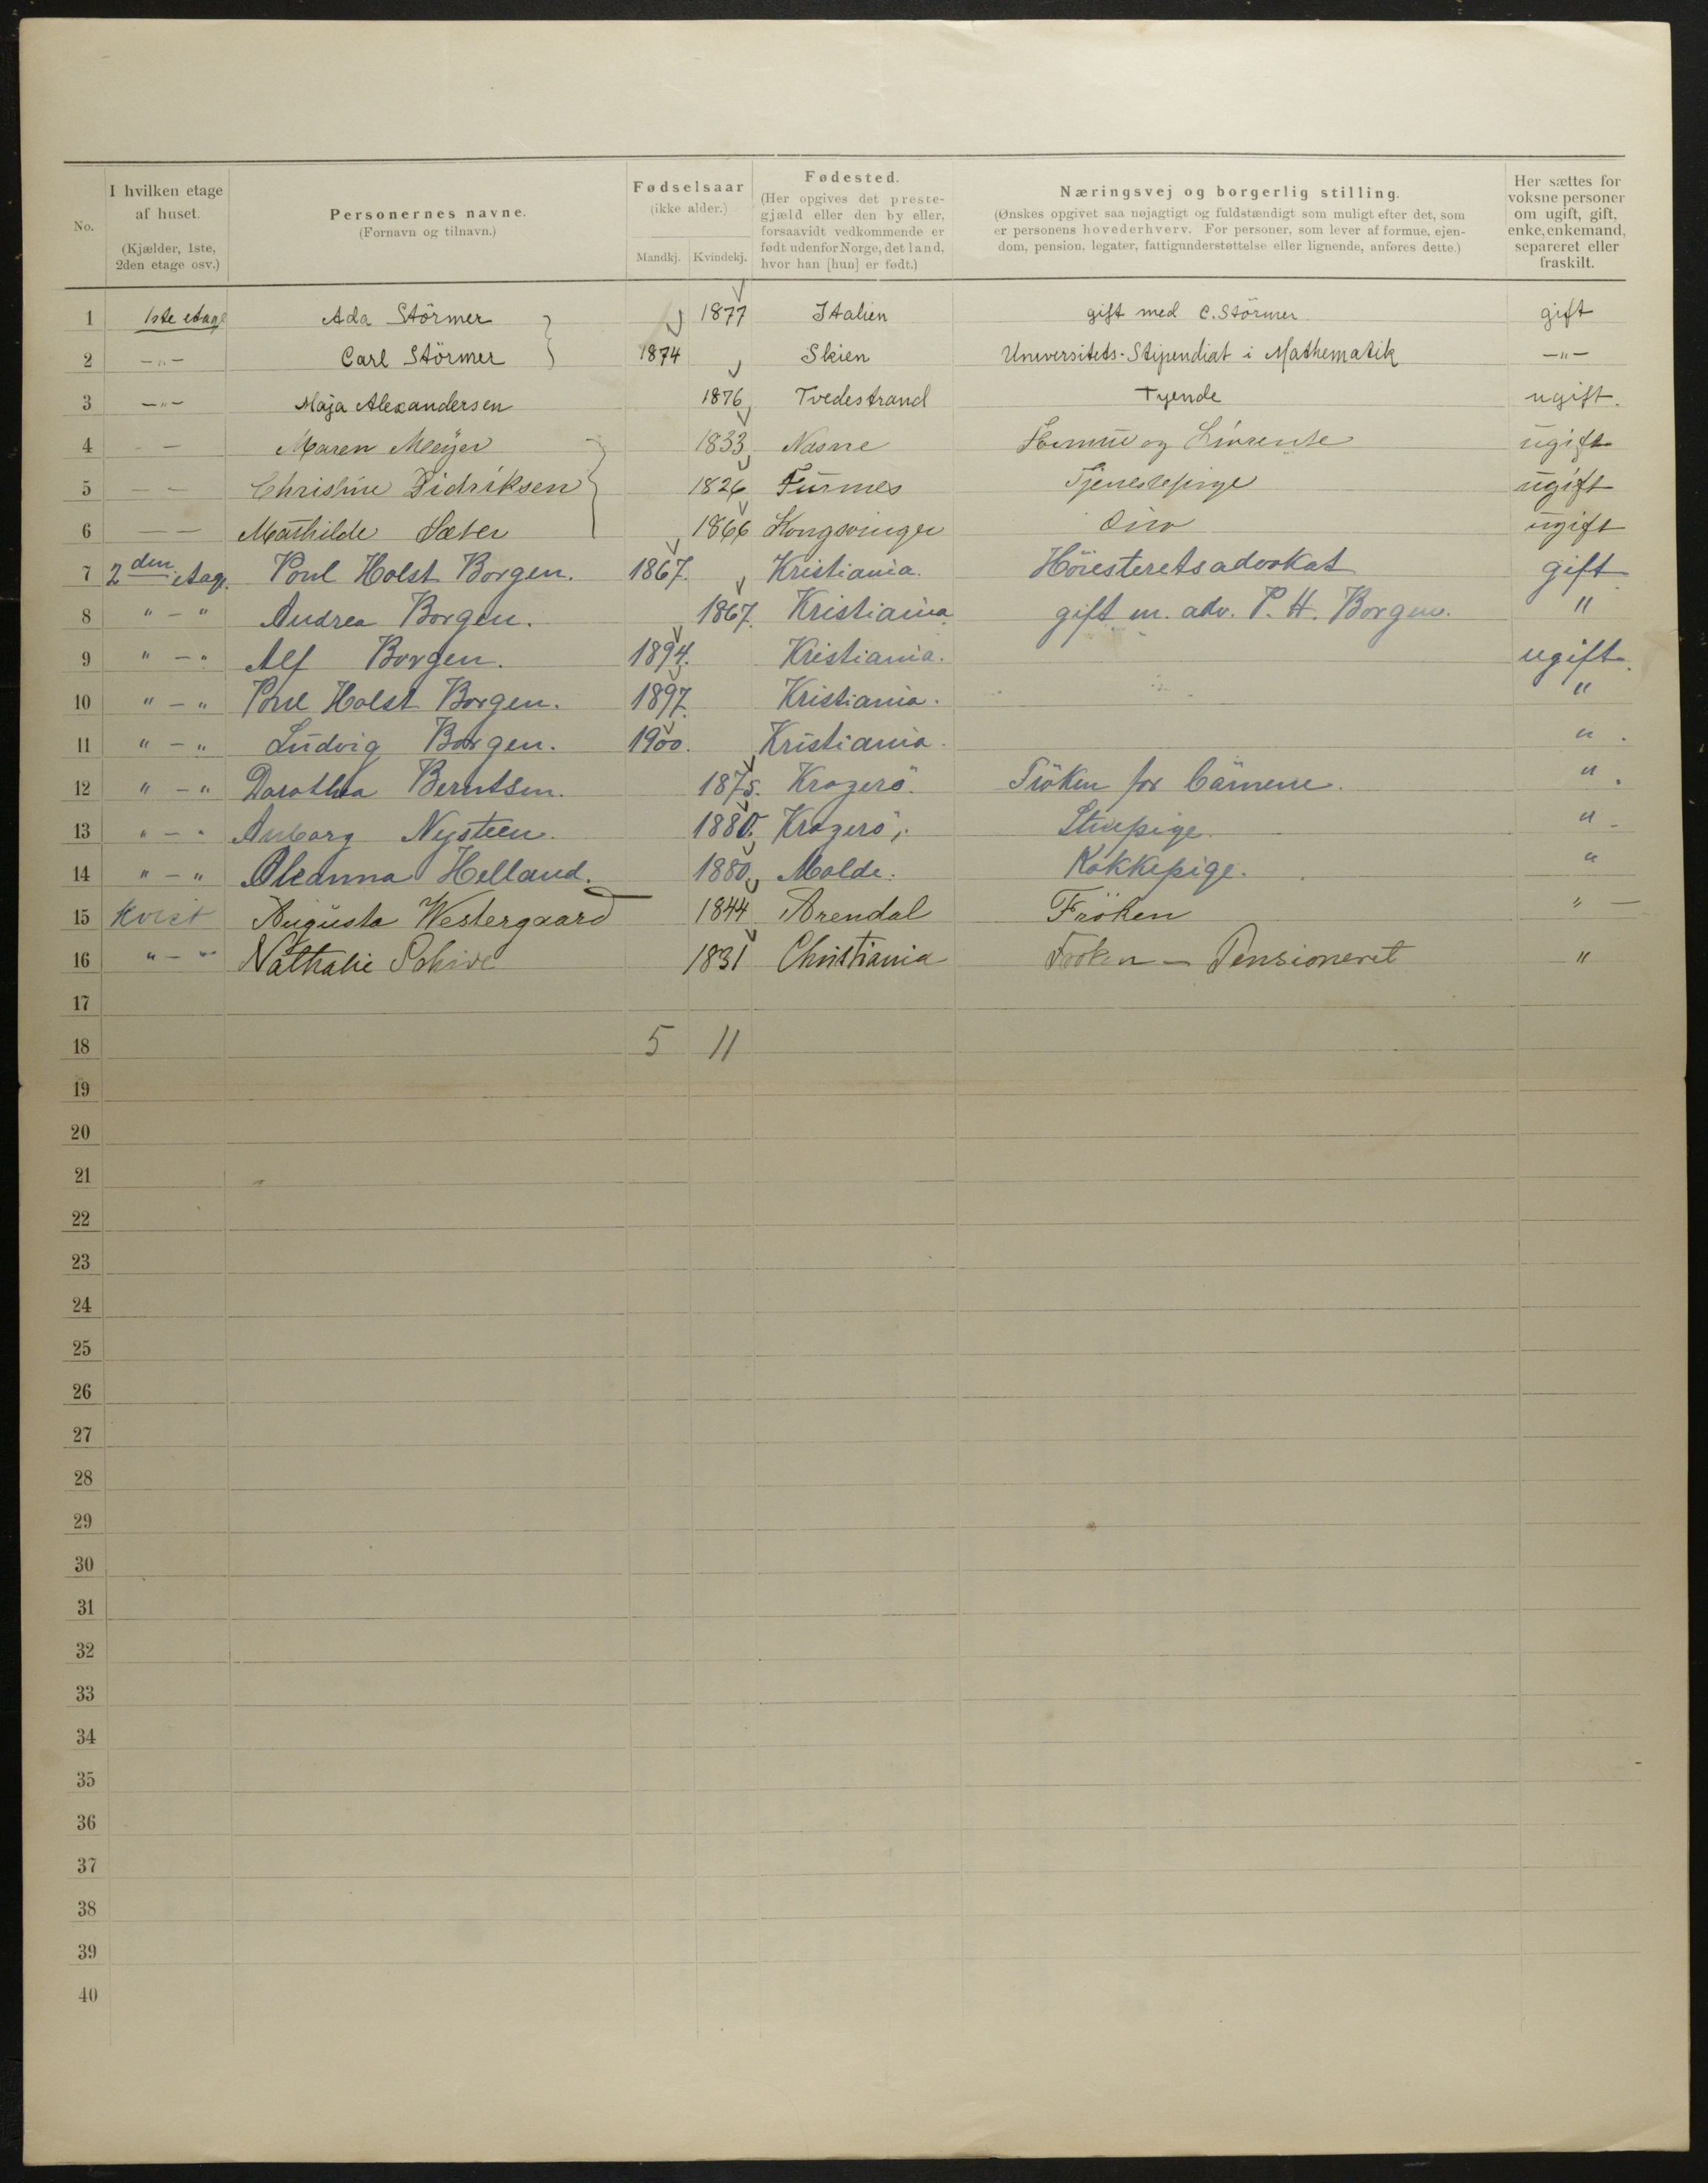 No.
I hvilken etage af huset. (Kjælder, 1ste, 2den etage osv.)
Personernes navne. (Fornavn og tilnavn.)
Fødselsaar (ikke alder.) Mandkj. Kvindekj.
Fødested. (Her opgives det prestegjæld eller den by eller, forsaavidt vedkommende er født udenfor Norge, det land, hvor han [hun] er født.)
Næringsvej og borgerlig stilling. (Ønskes opgivet saa nøjagtigt og fuldstændigt som muligt efter det, som er personens hovederhverv. For personer, som lever af formue, ejendom, pension, legater, fattigunderstøttelse eller lignende, anføres dette.)
Her sættes for voksne personer om ugift, gift, enke, enkemand, separeret eller fraskilt.
1 1ste etage Ada Störmer 1877 Italien gift med C. Störmer gift
2 -"- Carl Störmer 1874 Skien Universitets-Stipendiat i Mathematik -"-
3 -"- Maja Alexandersen 1876 Tvedestrand Tyende ugift.
4 - - Maren Meÿer 1833 og Livrente ugift
5 - - Christine Didriksen 1826 Furnes Tjenestepige ugift
6 - - Mathilde Sæter 1866 Kongsvinger ugift
7 2den etage. Poul Holst Borgen. 1867. Kristiania. Höiesteretsadvokat gift
8 " - " Andrea Borgen. 1867. Kristiania. gift m. adv. P. H. Borgen. "
9 " - " Alf Borgen. 1894. Kristiania. ugift.
10 " - " Poul Holst Borgen. 1897. Kristiania. "
11 " - " Ludvig Borgen. 1900. Kristiania. " .
12 " - " Dorothea Berntsen. 1875. Kragerö. Fröken for börnene. " .
13 " - " Nysteen. 1880. Kragerö. Stuepige. " -
14 " - " Oleanna Helland. 1880. Molde. Kokkepige. "
15 Kvist Augusta Westergaard 1844 Arendal Fröken " -
16 " - " Nathalie Schive 1831 Christiania Froken - Pensioneret "
17
18 5 11
19
20
21
22
23
24
25
26
27
28
29
30
31
32
33
34
35
36
37
38
39
40